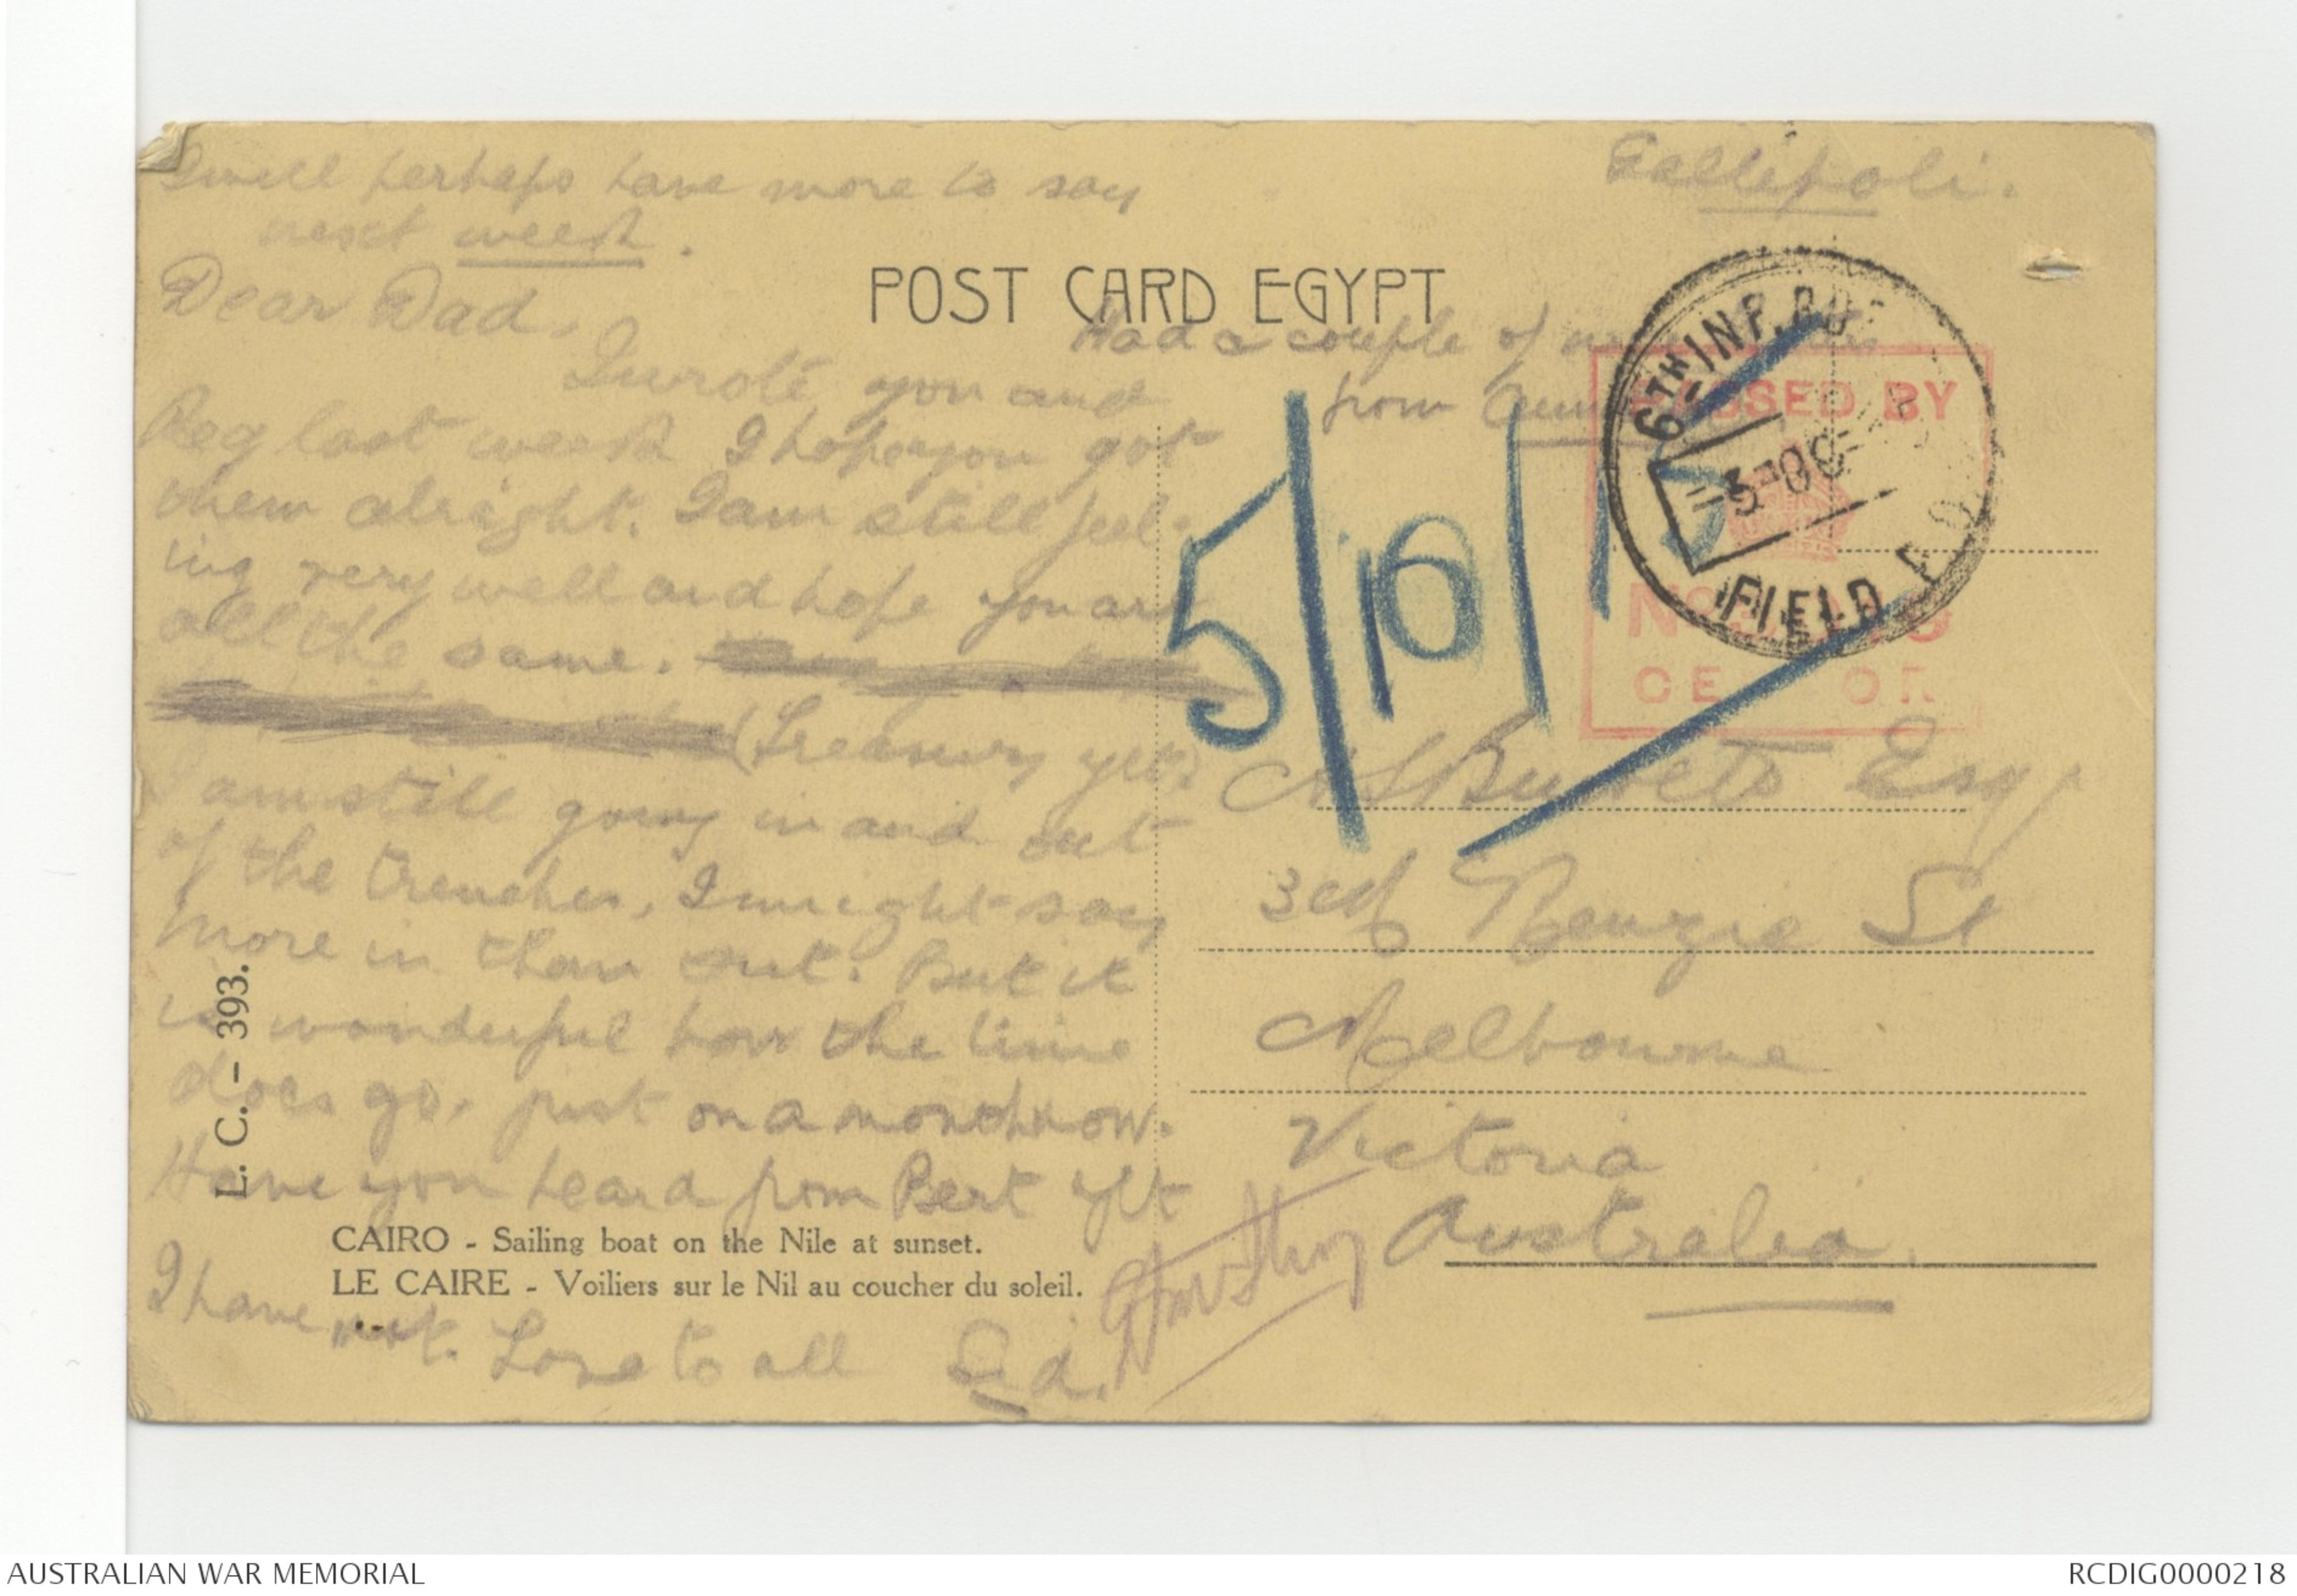 I will perhaps have more to say
next week.
Gallipoli.
POST CARD EGYPT
Dear Dad,
I wrote you and
Reg last week I hope you got
them alright. I am still feel-
ing very well and hope you are
all the same.
(Treasury yet?
I am still going in and out
of the trenches, I might say
more in than out. But it
is wonderful how the time
does go, just on a month now.
Have you heard from Bert yet
I have not. Love to all Sid.
Had a couple of
from
5/10/15
6TH INF.
FIELD
PASSED BY
CE OR
Esq
Menzies St
Melbourne
Victoria
Australia.
L. C. - 393.
CAIRO - Sailing boat on the Nile at sunset.
LE CAIRE - Voiliers sur le Nil au coucher du soleil.
AUSTRALIAN WAR MEMORIAL
RCDIG0000218